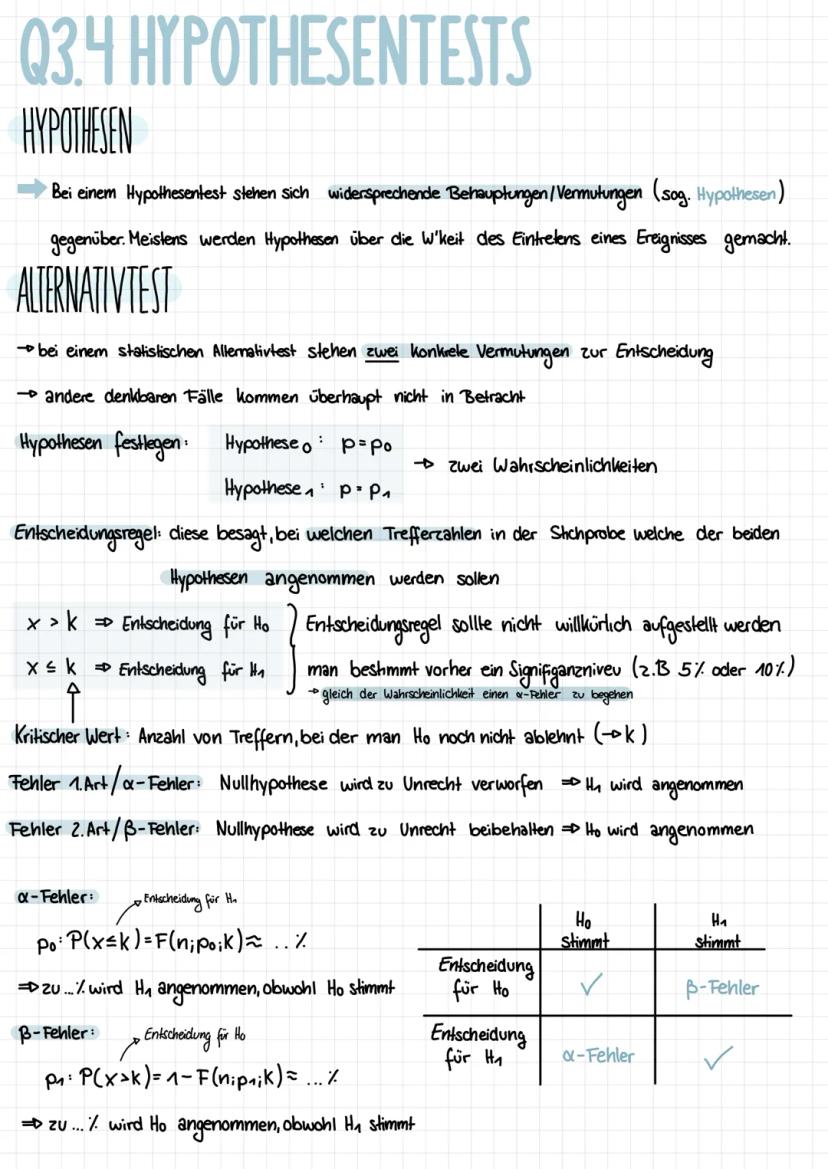 Q3.4 HYPOTHESENTESTS
HYPOTHESEN
➡ Bei einem Hypothesentest stehen sich widersprechende Behauptungen/Vermutungen (sog. Hypothesen)
gegenüber. Meistens werden Hypothesen über die W'keit des Eintretens eines Ereignisses gemacht.
ALTERNATIVTEST
→ bei einem statistischen Alternativtest stehen zwei konkrete Vermutungen zur Entscheidung
→ andere denkbaren Fälle kommen überhaupt nicht in Betracht
Hypothesen festlegen: Hypothese₀: p = p₀
→ zwei Wahrscheinlichkeiten
Hypothese₁: p = p₁
Entscheidungsregel: diese besagt, bei welchen Trefferzahlen in der Stichprobe welche der beiden
Hypothesen angenommen werden sollen
x > k ⇒ Entscheidung für H₀ } Entscheidungsregel sollte nicht willkürlich aufgestellt werden
x ≤ k ⇒ Entscheidung für H₁ man bestimmt vorher ein Signifiganzniveu (z.B 5% oder 10%)
→ gleich der Wahrscheinlichkeit einen α-Fehler zu begehen
Kritischer Wert: Anzahl von Treffern, bei der man H₀ noch nicht ablehnt (→k)
Fehler 1.Art/α-Fehler: Nullhypothese wird zu Unrecht verworfen ⇒ H₁ wird angenommen
Fehler 2.Art/β-Fehler: Nullhypothese wird zu Unrecht beibehalten ⇒ H₀ wird angenommen
α-Fehler:
Entscheidung für H₁
p₀: P(x≤k) = F(n;p₀;k) ≈ ..%
⇒ zu ...% wird H₁ angenommen, obwohl H₀ stimmt
β-Fehler:
Entscheidung für H₀
p₁: P(x>k) = 1-F(n;p₁;k) ≈ ...%
⇒ zu ...% wird H₀ angenommen, obwohl H₁ stimmt
H₀ stimmt
H₁ stimmt
Entscheidung
für H₀ ✓ β-Fehler
Entscheidung
für H₁ α-Fehler ✓